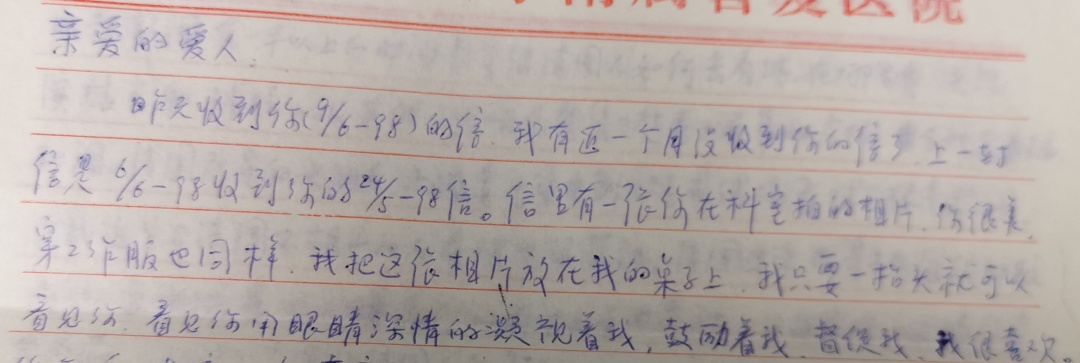 附属省友医院
亲爱的爱人.
昨天收到你(9/6-98)的信.我有近一个月没收到你的信了上一封
信是6/6-98收到你的24/5-98信。信里有一张你在科室拍的相片.你很美,
穿工作服也同样.我把这张相片放在我的桌子上.我只要一抬头就可以
看见你.看见你用眼睛深情的凝视着我,鼓励着我.督促我.我很喜欢